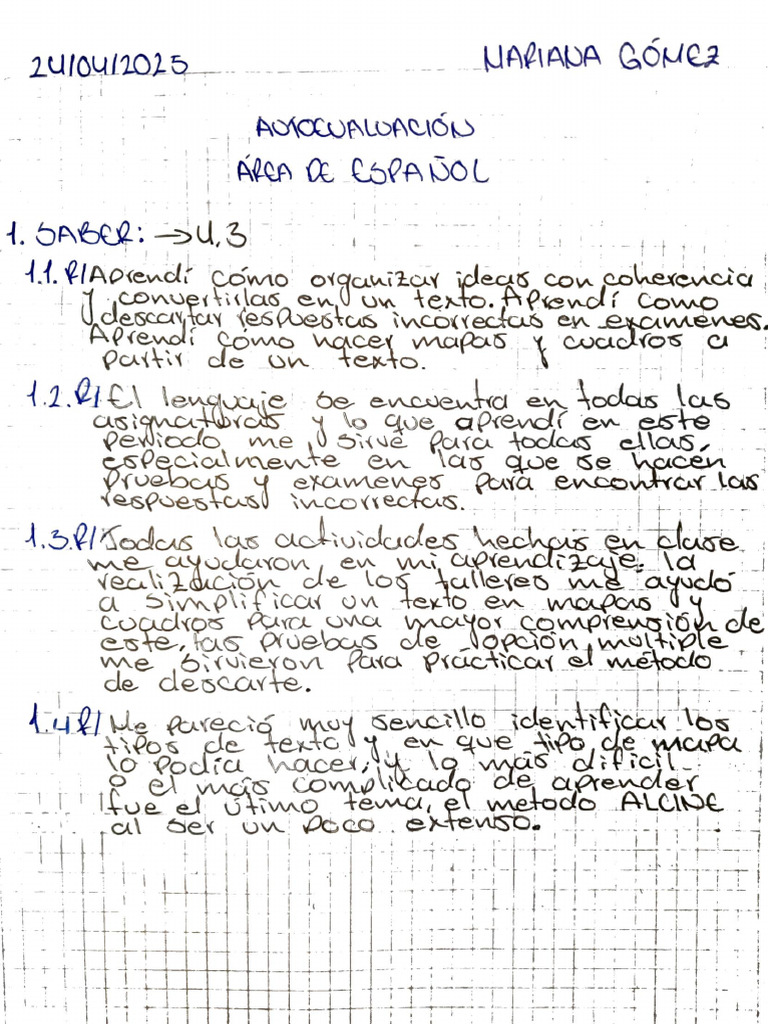 24/04/2025 MARIANA GÓMEZ
AUTOEVALUACIÓN
ÁREA DE ESPAÑOL
1. SABER: → 4.3
1.1. R/ Aprendí cómo organizar ideas con coherencia
y convertirlas en un texto. Aprendí como
descartar respuestas incorrectas en examenes.
Aprendí cómo hacer mapas y cuadros a
partir de un texto.
1.2. R/ El lenguaje se encuentra en todas las
asignaturas y lo que aprendí en este
periodo me sirve para todas ellas,
especialmente en las que se hacen
pruebas y examenes para encontrar las
respuestas incorrectas.
1.3. R/ Todas las actividades hechas en clase
me ayudaron en mi aprendizaje. la
realización de los talleres me ayudó
a simplificar un texto en mapas y
cuadros para una mayor comprensión de
este, las pruebas de opción multiple
me sirvieron para practicar el método
de descarte.
1.4 R/ Me pareció muy sencillo identificar los
tipos de texto y en que tipo de mapa
lo podía hacer, y lo más dificil
o el más complicado de aprender
fue el útimo tema, el metodo ALCINE
al ser un poco extenso.